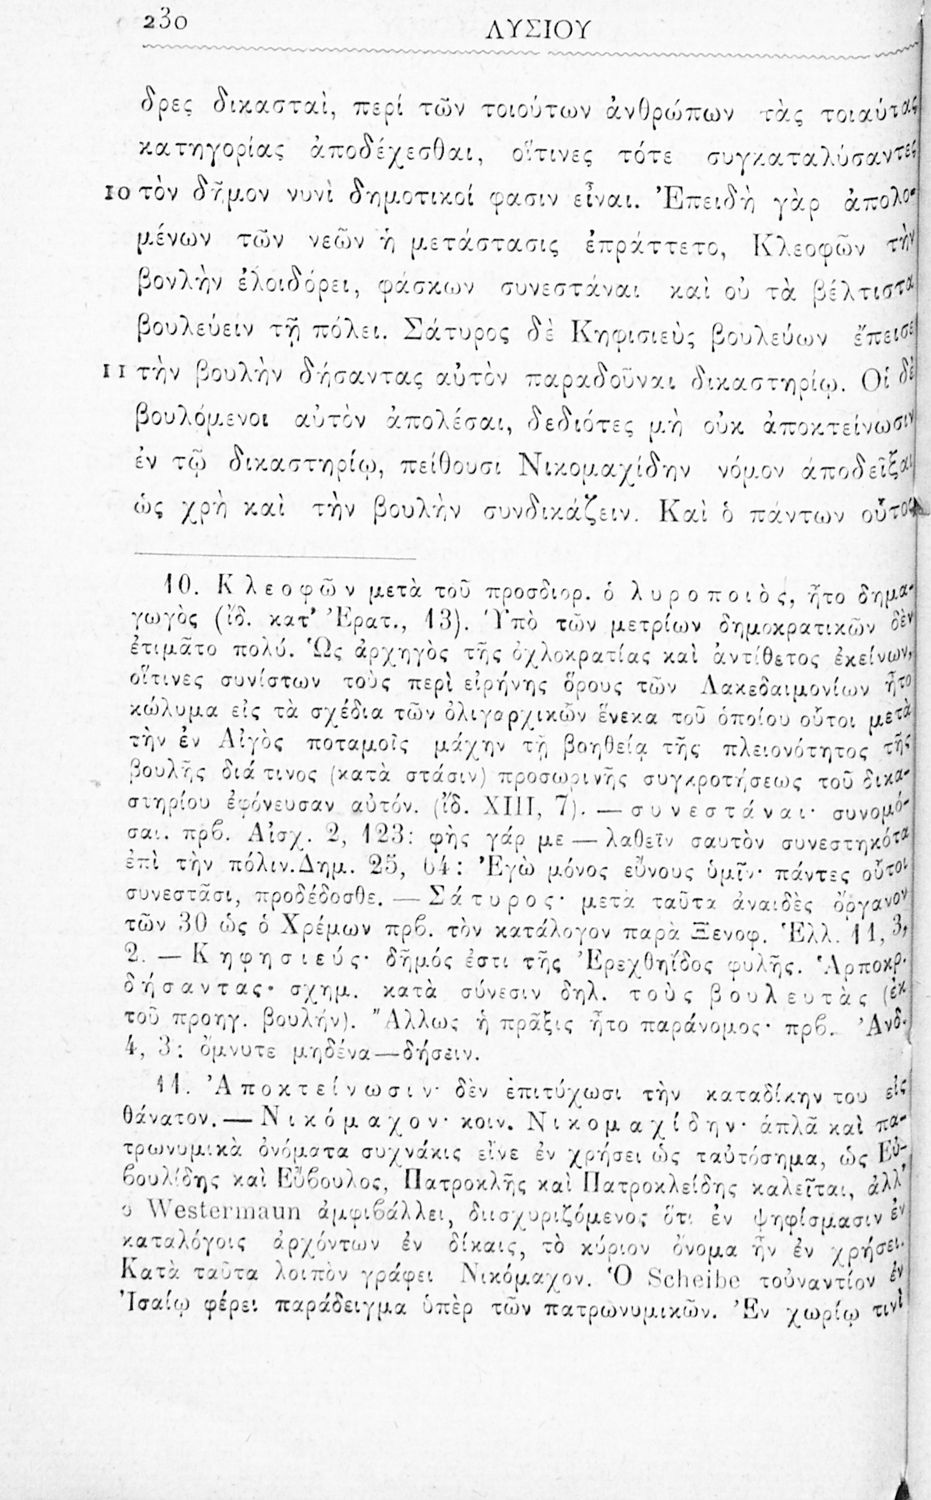 230 ΛΥΣΙΟΥ
δρες δικασταὶ, περί τῶν τοιούτων ἀνθρώπων τὰς τοιαύτας
κατηγορίας ἀποδέχεσθαι, οἵτινες τότε συγκαταλύσαντες
10 τὸν δῆμον νυνὶ δημοτικοί φασιν εἶναι. Ἐπειδὴ γὰρ ἀπολο-
μένων τῶν νεῶν ἡ μετάστασις ἐπράττετο, Κλεοφῶν τὴν
βονλὴν ἐλοιδόρει, φάσκων συνεστάναι καὶ οὐ τὰ βέλτιστα
βουλεύειν τῇ πόλει. Σάτυρος δὲ Κηφισιεὺς βουλεύων ἔπεισε
11 τὴν βουλὴν δήσαντας αὐτὸν παραδοῦναι δικαστηρίῳ. Οἱ δὲ
βουλόμενοι αὐτὸν ἀπολέσαι, δεδιότες μὴ οὐκ ἀποκτείνωσιν
ἐν τῷ δικαστηρίῳ, πείθουσι Νικομαχίδην νόμον ἀποδεῖξαι
ὡς χρὴ καὶ τὴν βουλὴν συνδικάζειν. Καὶ ὁ πάντων οὗτος
10. Κλεοφῶν μετὰ τοῦ προσδιορ. ὁ λυροποιὸς, ἦτο δημα-
γωγὸς (ἴδ. κατ' Ἐρατ., 13). Ὑπὸ τῶν μετρίων δημοκρατικῶν δὲν
ἐτιμᾶτο πολύ. Ὡς ἀρχηγὸς τῆς ὀχλοκρατίας καὶ ἀντίθετος ἐκείνων,
οἵτινες συνίστων τοὺς περὶ εἰρήνης ὅρους τῶν Λακεδαιμονίων ἦτο
κώλυμα εἰς τὰ σχέδια τῶν ὀλιγαρχικῶν ἕνεκα τοῦ ὁποίου οὗτοι μετὰ
τὴν ἐν Αἰγὸς ποταμοῖς μάχην τῇ βοηθείᾳ τῆς πλειονότητος τῆς
βουλῆς διά τινος (κατὰ στάσιν) προσωρινῆς συγκροτήσεως τοῦ δικα-
στηρίου ἐφόνευσαν αὐτόν. (ἴδ. XIII, 7). — συνεστάναι· συνομό-
σαι. πρβ. Αἰσχ. 2, 123: φὴς γάρ με — λαθεῖν σαυτὸν συνεστηκότα
ἐπὶ τὴν πόλιν. Δημ. 25, 64: Ἐγὼ μόνος εὔνους ὑμῖν· πάντες οὗτοι
συνεστᾶσι, προδέδοσθε. — Σάτυρος· μετὰ ταῦτα ἀναιδὲς ὄργανον
τῶν 30 ὡς ὁ Χρέμων πρβ. τὸν κατάλογον παρὰ Ξενοφ. Ἑλλ. 11, 3,
2. — Κηφησιεύς· δῆμός ἐστι τῆς Ἐρεχθηΐδος φυλῆς. Ἁρποκρ.
δήσαντας· σχημ. κατὰ σύνεσιν δηλ. τοὺς βουλευτὰς (ἐκ
τοῦ προηγ. βουλήν). Ἄλλως ἡ πρᾶξις ἦτο παράνομος· πρβ. Ἀνδ.
4, 3: ὀμνυτε μηδένα—δήσειν.
11. Ἀποκτείνωσιν· δὲν ἐπιτύχωσι τὴν καταδίκην του εἰς
θάνατον. — Νικόμαχον· κοιν. Νικομαχίδην· ἁπλᾶ καὶ πα-
τρωνυμικὰ ὀνόματα συχνάκις εἶνε ἐν χρήσει ὡς ταὐτόσημα, ὡς Εὐ-
βουλίδης καὶ Εὔβουλος, Πατροκλῆς καὶ Πατροκλείδης καλεῖται, ἀλλ'
ο Westermaun ἀμφιβάλλει, διισχυριζόμενος ὅτι ἐν ψηφίσμασιν ἐν
καταλόγοις ἀρχόντων ἐν δίκαις, τὸ κύριον ὄνομα ἦν ἐν χρήσει.
Κατὰ ταῦτα λοιπὸν γράφει Νικόμαχον. Ὁ Scheibe τοὐναντίον ἐν
Ἰσαίῳ φέρει παράδειγμα ὑπὲρ τῶν πατρωνυμικῶν. Ἐν χωρίῳ τινὶ